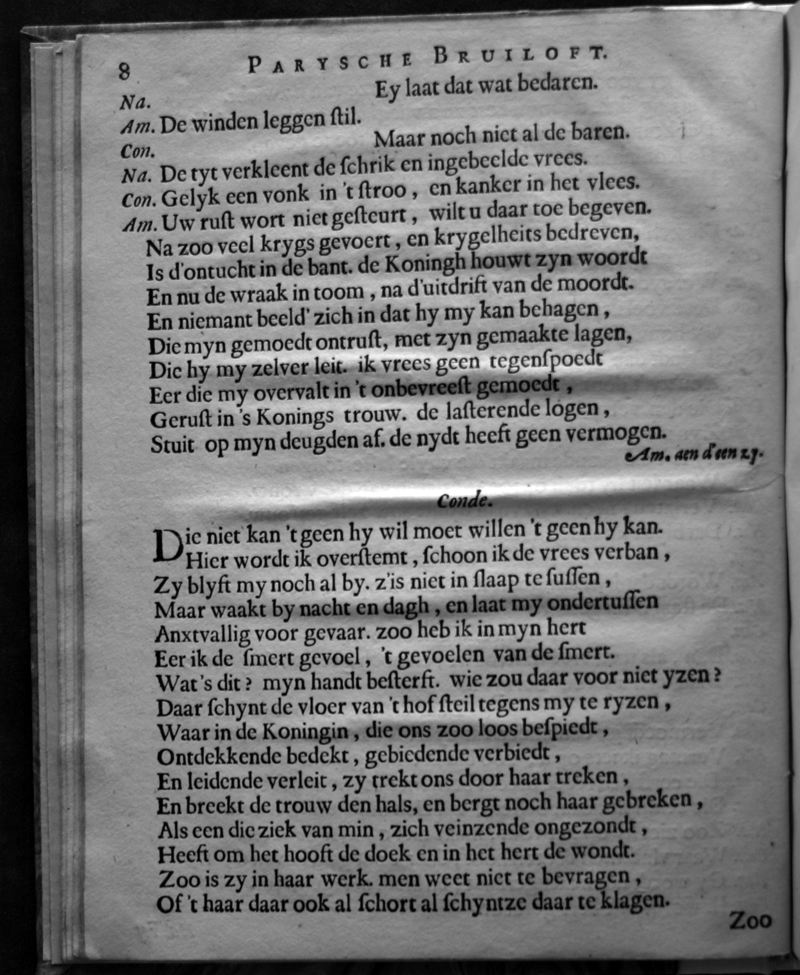 8 PARYSCHE BRUILOFT.
Na. Ey laat dat wat bedaren.
Am. De winden leggen ſtil.
Con. Maar noch niet al de baren.
Na. De tyt verkleent de ſchrik en ingebeelde vrees.
Con. Gelyk een vonk in 't ſtroo, en kanker in het vlees.
Am. Uw ruſt wort niet geſteurt, wilt u daar toe begeven.
Na zoo veel krygs gevoert, en krygelheits bedreven,
Is d'ontucht in de bant. de Koningh houwt zyn woordt
En nu de wraak in toom, na d'uitdrift van de moordt.
En niemant beeld' zich in dat hy my kan behagen,
Die myn gemoedt ontruſt, met zyn gemaakte lagen,
Die hy my zelver leit. ik vrees geen tegenſpoedt
Eer die my overvalt in 't onbevreeſt gemoedt,
Geruſt in 's Konings trouw. de laſterende logen,
Stuit op myn deugden af. de nydt heeft geen vermogen.
Am. aen d'een zy.
Conde.
Die niet kan 't geen hy wil moet willen 't geen hy kan.
Hier wordt ik overſtemt, ſchoon ik de vrees verban,
Zy blyft my noch al by. z'is niet in ſlaap te ſuſſen,
Maar waakt by nacht en dagh, en laat my ondertuſſen
Anxtvallig voor gevaar. zoo heb ik in myn hert
Eer ik de ſmert gevoel, 't gevoelen van de ſmert.
Wat's dit? myn handt beſterft. wie zou daar voor niet yzen?
Daar ſchynt de vloer van 't hof ſteil tegens my te ryzen,
Waar in de Koningin, die ons zoo loos beſpiedt,
Ontdekkende bedekt, gebiedende verbiedt,
En leidende verleit, zy trekt ons door haar treken,
En breekt de trouw den hals, en bergt noch haar gebreken,
Als een die ziek van min, zich veinzende ongezondt,
Heeft om het hooft de doek en in het hert de wondt.
Zoo is zy in haar werk. men weet niet te bevragen,
Of 't haar daar ook al ſchort al ſchyntze daar te klagen.
Zoo